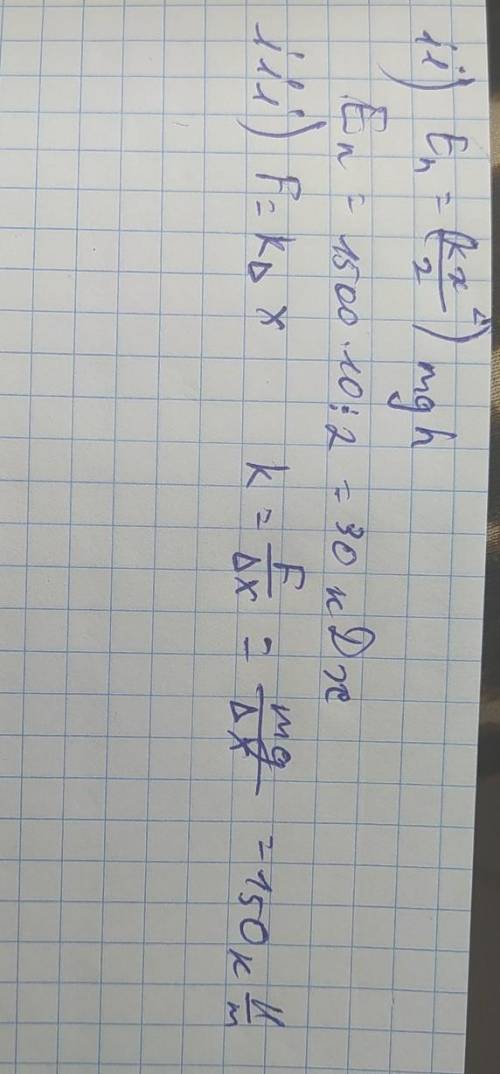 ii) Eп = (kx²/2) mgh
Eп = 1500·10·2 = 30 кДж
iii) F = kΔx k = F/Δx = mg/Δx = 150 к Н/m